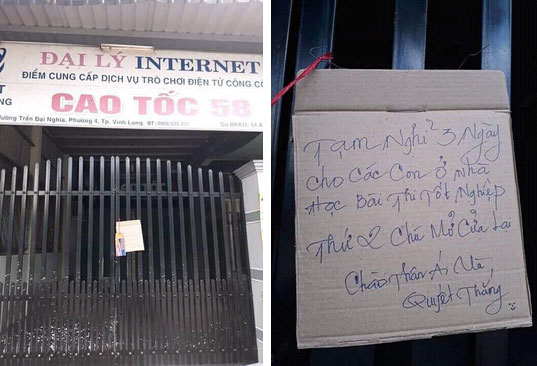 ĐẠI LÝ INTERNET
ĐIỂM CUNG CẤP DỊCH VỤ TRÒ CHƠI ĐIỆN TỬ CÔNG CỘ
CAO TỐC 58
Đường Trần Đại Nghĩa, Phường 4, Tp. Vĩnh Long. ĐT:
Tạm Nghỉ 3 Ngày
Cho Các Con Ở Nhà
Học Bài Thi Tốt Nghiệp
Thứ 2 Chú Mở Cửa Lại
Chào Thân Ái Và
Quyết Thắng